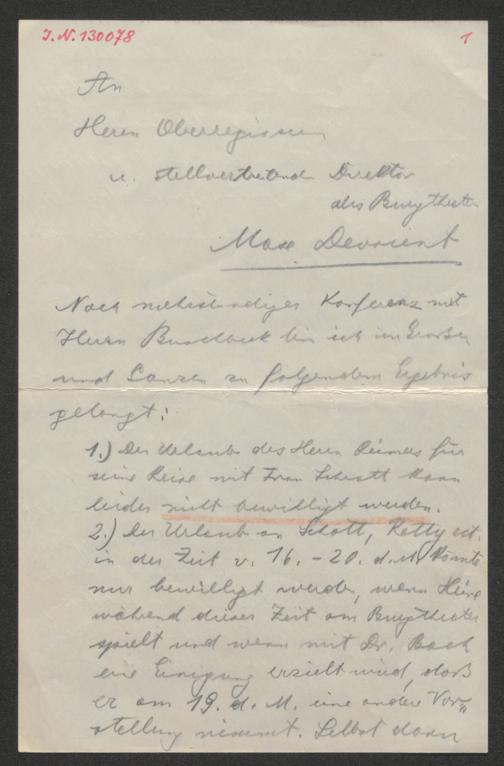 I.N. 130078
1
An
Herrn Oberregisseur
u. stellvertretenden Direktor
des Burgtheaters
Max Devrient
Nach mehrstündiger Konferenz mit
Herrn Buschbeck bin ich im Grossen
und Ganzen zu folgendem Ergebnis
gelangt:
1.) Der Urlaub des Herrn Reimers für
seine Reise mit Frau Schratt kann
leider nicht bewilligt werden.
2.) Der Urlaub an Schott, Retty etc.
in der Zeit v. 16. - 20. d. M. könnte
nur bewilligt werden, wenn Heine
während dieser Zeit am Burgtheater
spielt und wenn mit Dr. Beck
eine Einigung erzielt wird, daß
er am 19. d. M. eine andere Vor=
stellung nimmt. Selbst dann